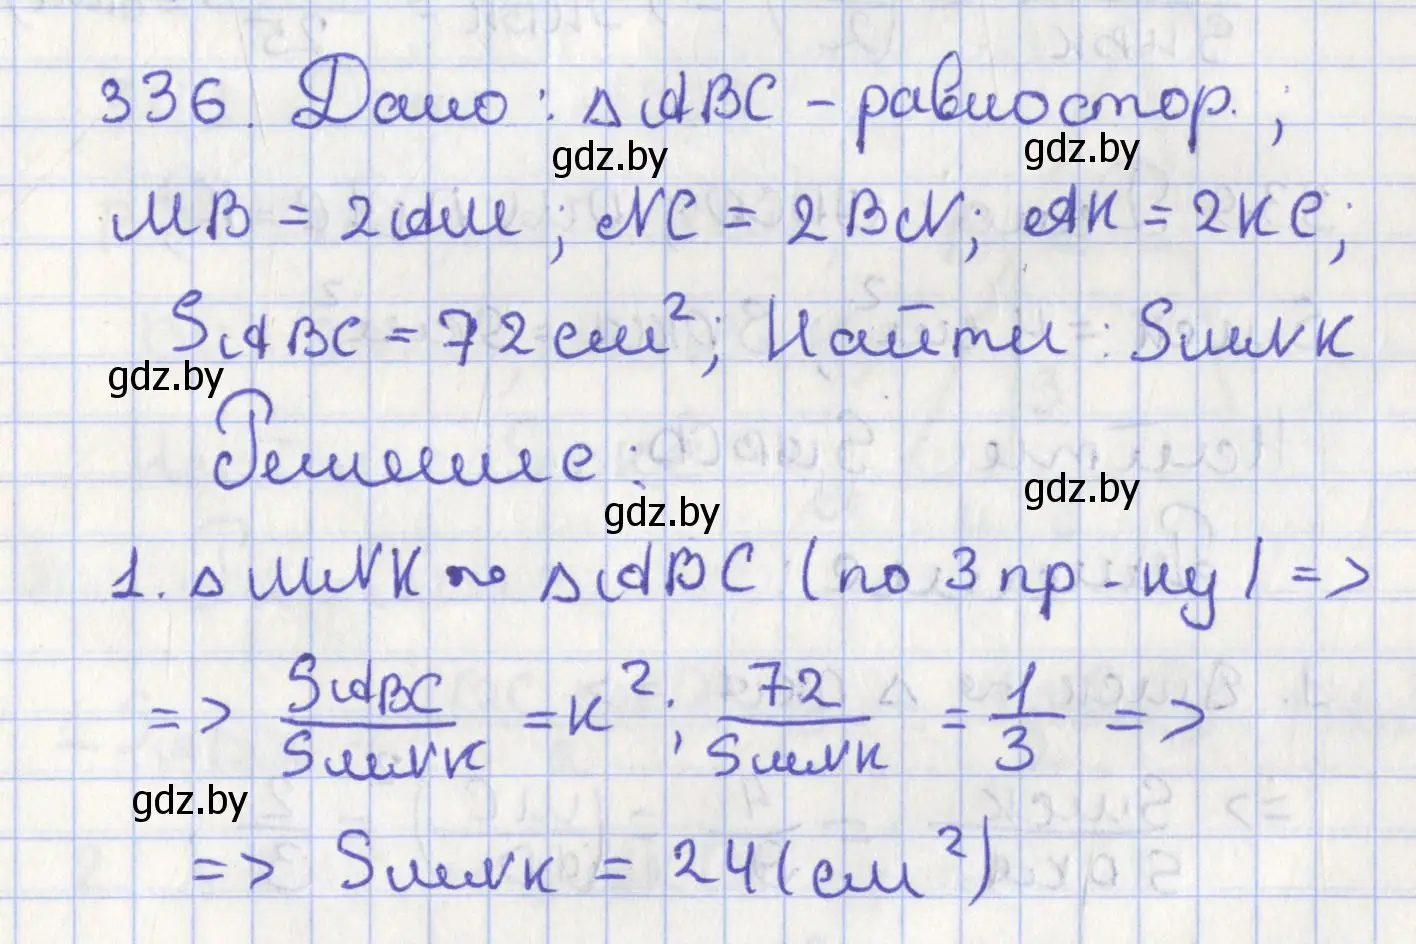 336. Дано: △ABC - равностор.;
gdz.by gdz.by
MB = 2AM; NC = 2BN; AK = 2KC;
S ABC = 72 см²; Найти: S MNK
gdz.by
Решение:
gdz.by gdz.by
1. △MNK ~ △ABC (по 3 пр-ку) =>
=> S ABC / S MNK = k²; 72 / S MNK = 1/3 =>
gdz.by
=> S MNK = 24 (см²)